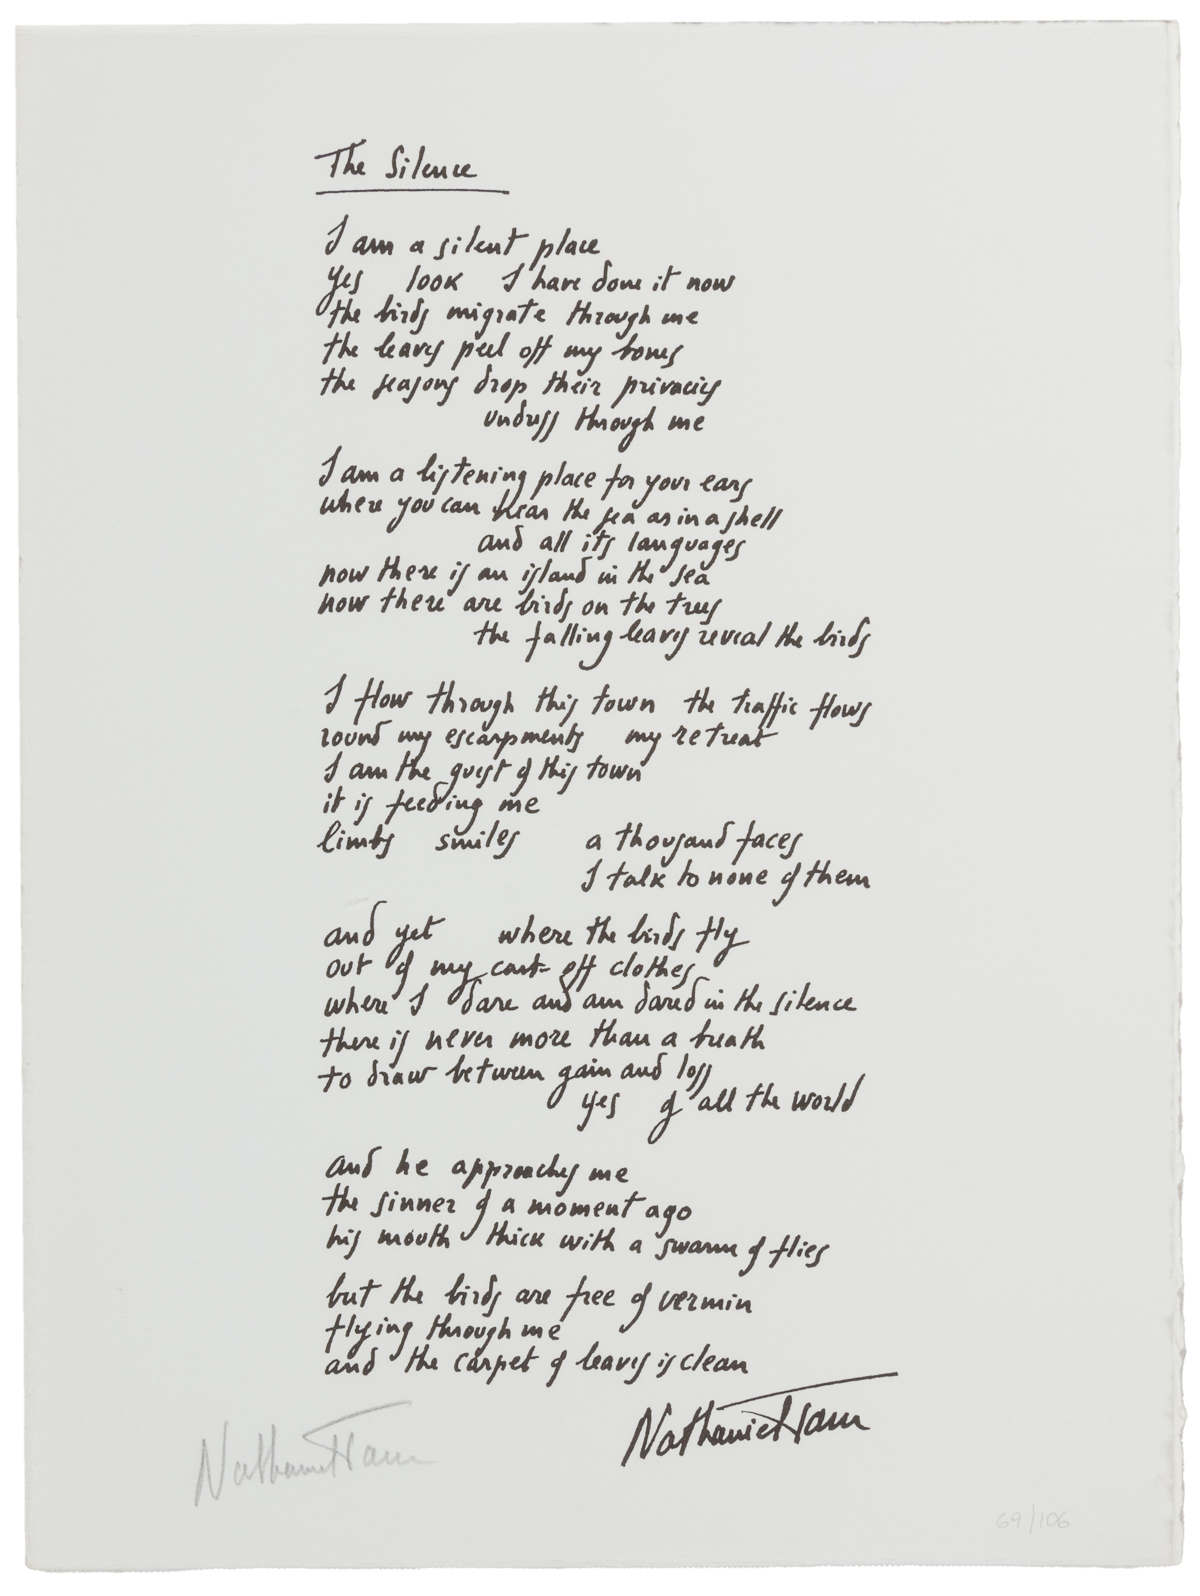 The Silence
I am a silent place
yes look I have done it now
the birds migrate through me
the leaves peel off my bones
the seasons drop their privacies
undress through me
I am a listening place for your ears
where you can hear the sea as in a shell
and all its languages
now there is an island in the sea
now there are birds on the trees
the falling leaves reveal the birds
I flow through this town the traffic flows
round my escarpments my retreat
I am the guest of this town
it is feeding me
limbs smiles a thousand faces
I talk to none of them
and yet where the birds fly
out of my cast-off clothes
where I dare and am dared in the silence
there is never more than a breath
to draw between gain and loss
yes of all the world
and he approaches me
the sinner of a moment ago
his mouth thick with a swarm of flies
but the birds are free of vermin
flying through me
and the carpet of leaves is clean
Nathaniel Tarn
Nathaniel Tarn
69/106